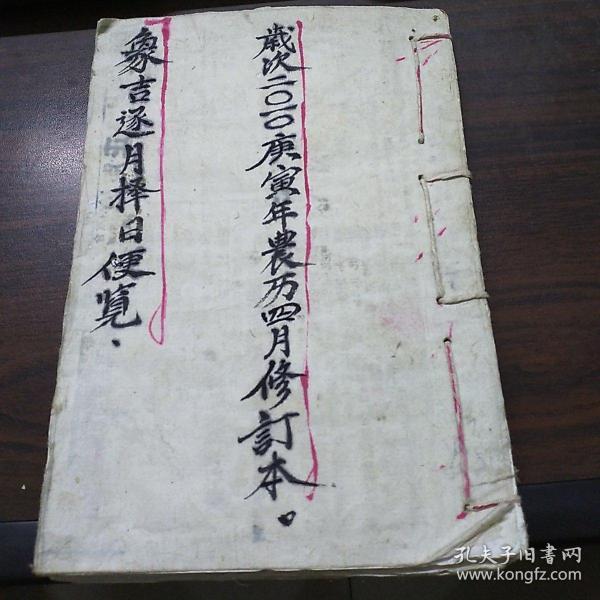 歲次二〇一〇庚寅年農历四月修訂本。
象吉逐月擇日便览.
孔夫子旧書网
www.kongfz.com